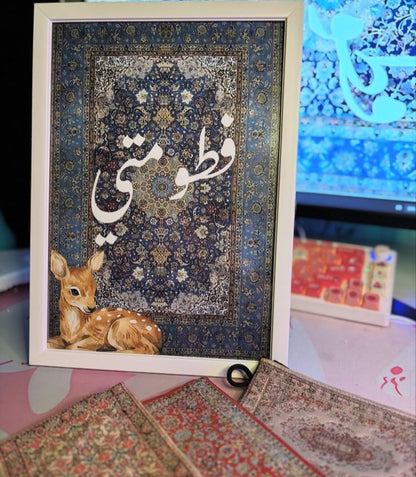 فطومتي